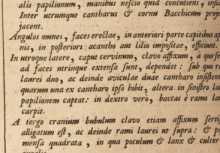 alis papilionum, manibus nescio quid concinens, insi
Inter utrumque cantharus & cornu Bacchicum po
jacent.
Angulos munit, facies erectae, in anteriori parte capitibus
nis, in posteriori acantho aut lilio impositae, effictae.
In utroque latere, caput cervinum, clavo affixum, a quo
ad facies utrinque extensa sunt, dependet: sub quo
lauri duo, ac deinde aviculae duae cantharo insistentes
quarum una ex cantharo ipso bibit, altera in sinistro la
papilionem captat: in dextro vero, baccas e ramo la
carpit.
A tergo cranium bubulum clavo etiam affixum serti
alligatum est, ac deinde rami laurei ut supra: & p
mensa quadrata, in qua poculum & lanx & culte